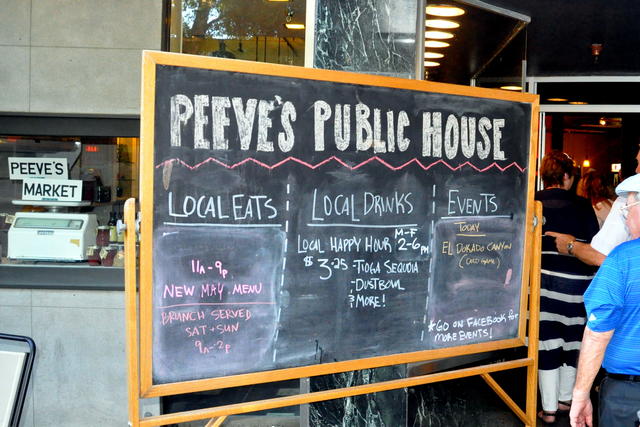 PEEVE'S PUBLIC HOUSE
PEEVE'S
MARKET
LOCAL EATS
11A-9P
NEW MAY MENU
BRUNCH SERVED
SAT + SUN
9A-2P
LOCAL DRINKS
LOCAL HAPPY HOUR M-F 2-6PM
$3.25 -TIOGA SEQUOIA
-DUSTBOWL
& MORE!
EVENTS
TODAY
EL DORADO CANYON
*GO ON FACEBOOK for
MORE EVENTS!